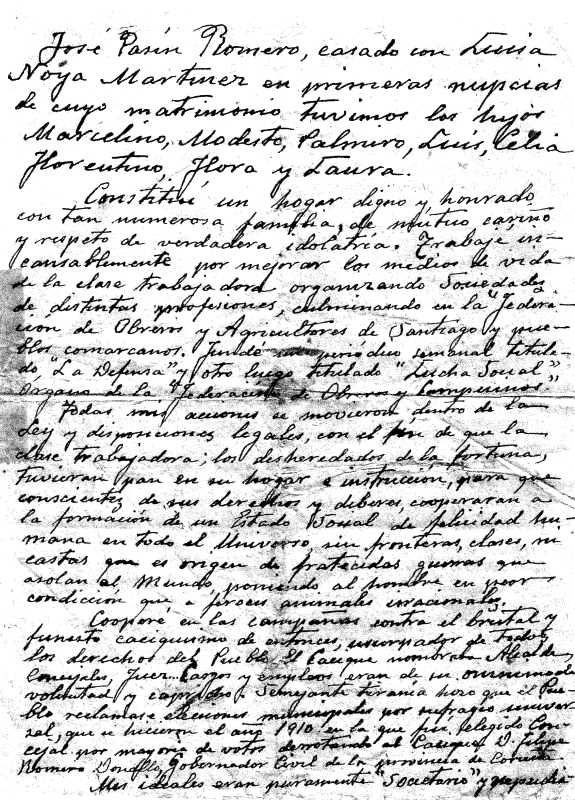 José Pasín Romero, casado con Luisa
Noya Martinez en primeras nupcias
de cuyo matrimonio tuvimos los hijos
Marcelino, Modesto, Palmiro, Luis, Celia
Florentino, Flora y Laura.
Constituí un hogar digno y honrado
con tan numerosa familia, de mutuo cariño
y respeto de verdadera idolatria. Trabajé in-
cansablemente por mejorar los medios de vida
de la clase trabajadora organizando Sociedades
de distintas profesiones, culminando en la "Federa-
ción de Obreros y Agricultores de Santiago y pue-
blos comarcanos. Fundé un periódico semanal titula-
do "La Defensa" y otro luego titulado "Lucha Social"
Organo de la "Federación de Obreros y Campesinos"
Todas mis acciones se movieron dentro de la
Ley y disposiciones legales, con el fin de que la
clase trabajadora; los desheredados de la fortuna,
tuvieran pan en su hogar e instrucción, para que
conscientes de sus derechos y deberes, cooperaran a
la formación de un Estado Social de felicidad hu-
mana en todo el Universo, sin fronteras, clases, ni
castas que es origen de fratecidas guerras que
asolan al Mundo poniendo al hombre en peor
condicción que a feroces animales irracionales.
Cooporé en las campañas contra el brutal y
funesto caciquismo de entonces, usurpador de todos
los derechos del Pueblo. El Cacique nombraba Alcalde,
Concejales, Juez. Cargos y empleos eran de su omnimoda
voluntad y capricho. Semejante tirania hizo que el Pue-
blo reclamase elecciones municipales por sufragio univer-
sal, que se hicieron el año 1910 en la que fui elegido Con-
cejal por mayoria de votos derrotando al Cacique D. Felipe
Romero Donallo, Gobernador Civil de la provincia de Coruña
Mis ideales eran puramente "Societario" y